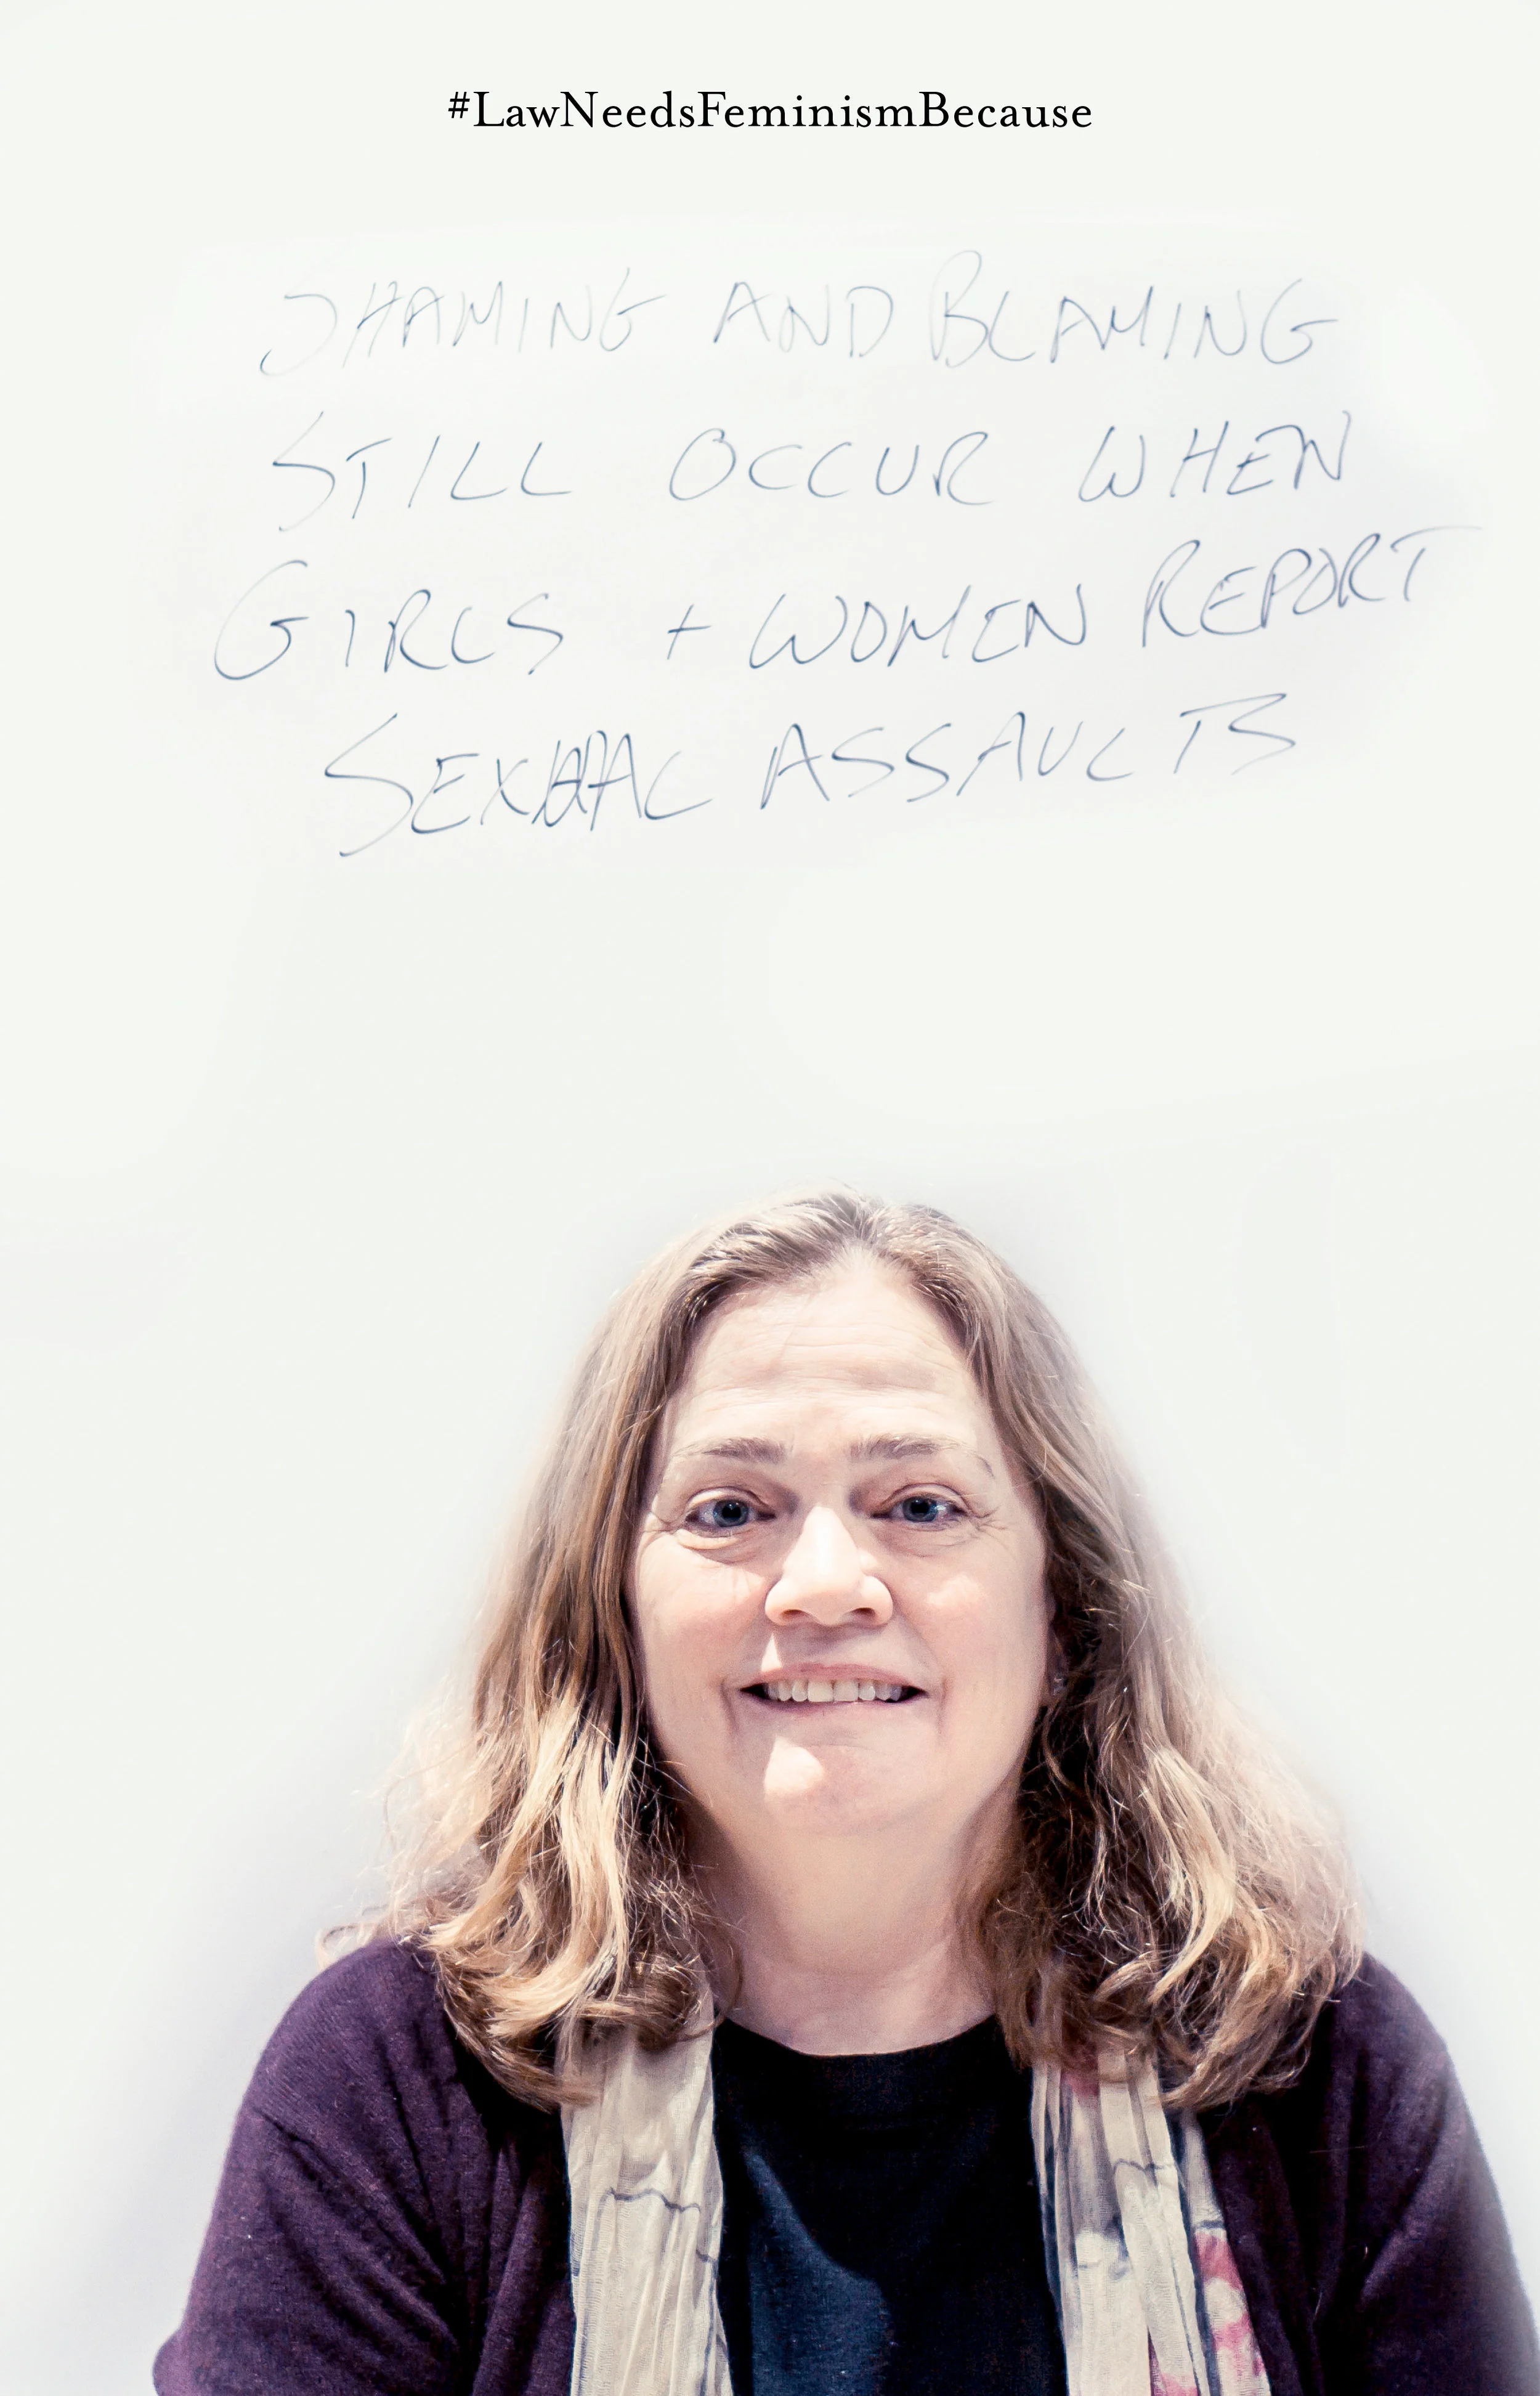 #LawNeedsFeminismBecause
SHAMING AND BLAMING
STILL OCCUR WHEN
GIRLS + WOMEN REPORT
SEXUAL ASSAULTS